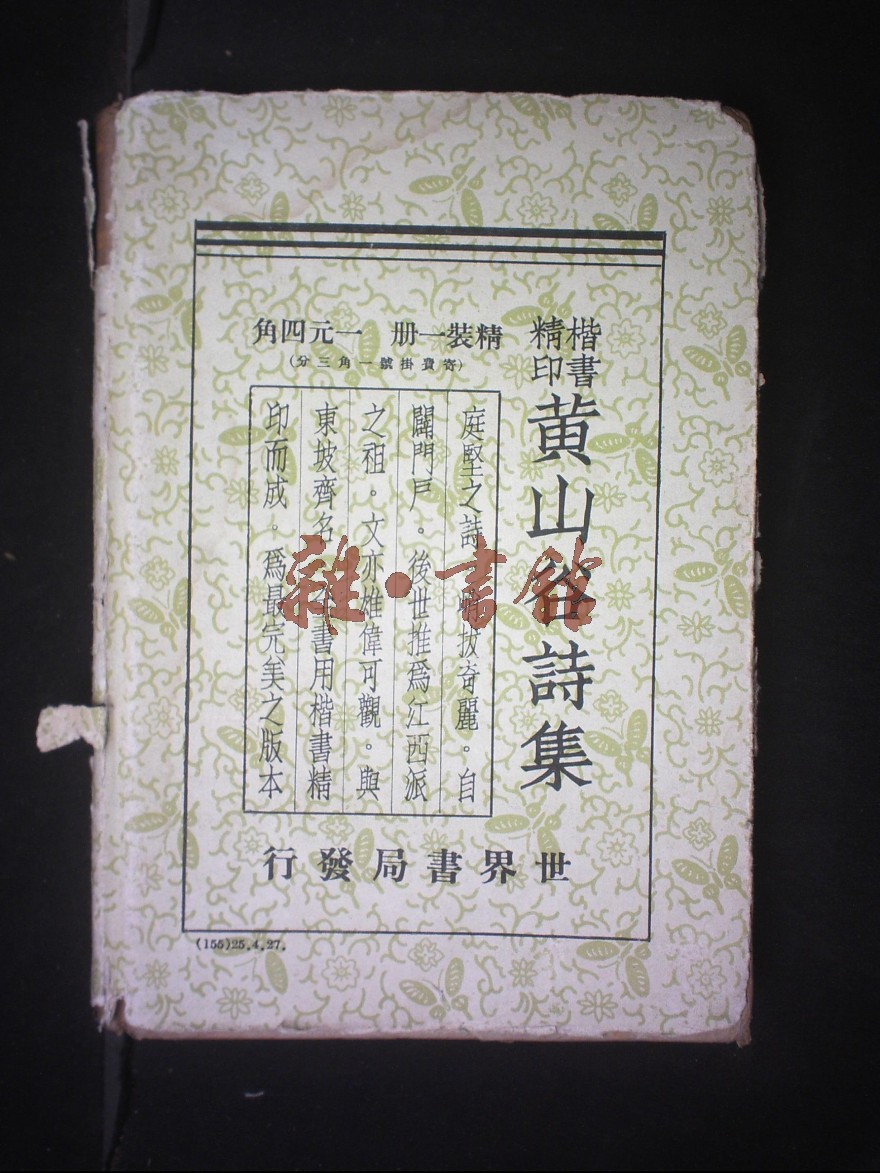 楷書
精印
黄山谷詩集
精裝一册 一元四角
(寄費掛號一角三分)
庭堅之詩 拔奇麗。自
闢門戶。後世推爲江西派
之祖。文亦雄偉可觀。與
東坡齊名 書用楷書精
印而成。爲最完美之版本
世界書局發行
(155)25.4.27.
雜·書館